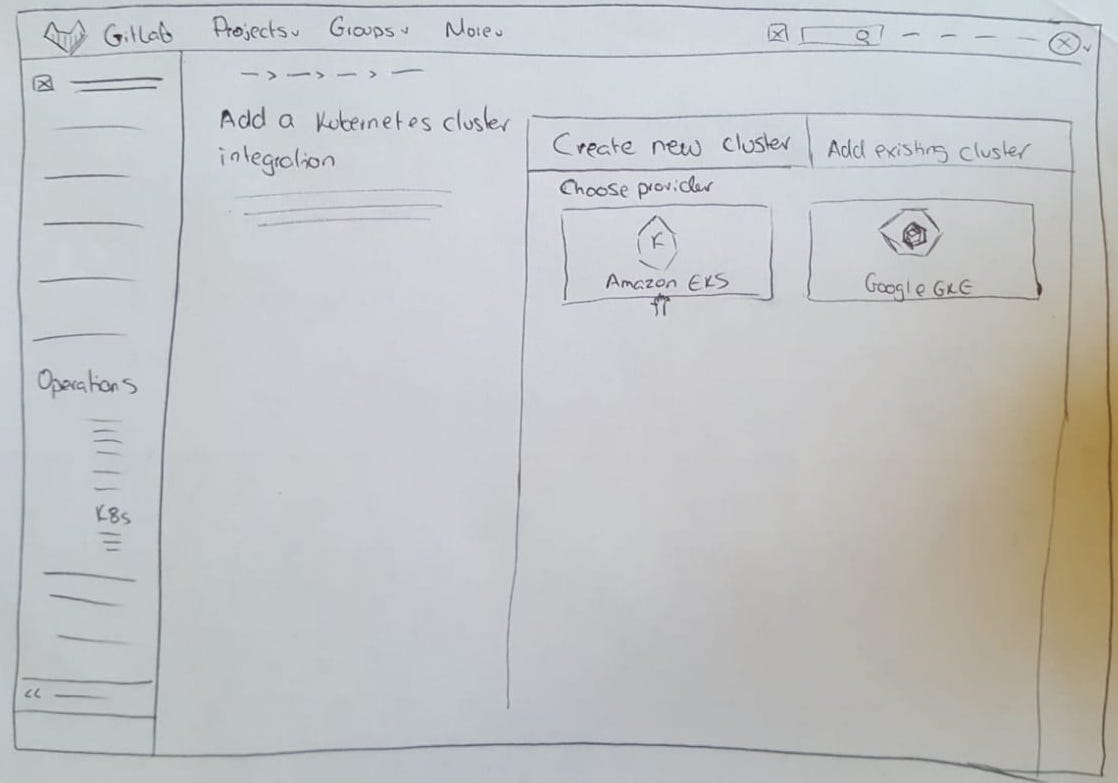 GitLab
Projects
Groups
More
Add a Kubernetes cluster
integration
Create new cluster
Add existing cluster
Choose provider
K
Amazon EKS
Google GKE
Operations
K8s